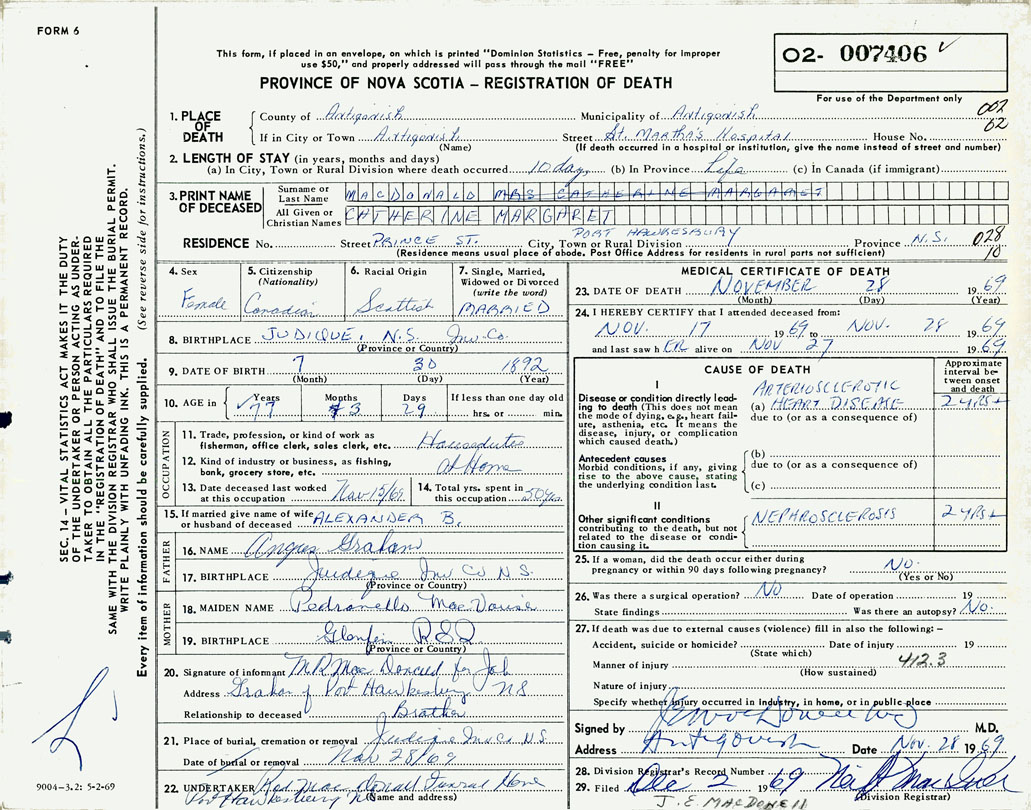 FORM 6
This form, if placed in an envelope, on which is printed "Dominion Statistics – Free, penalty for improper
use $50," and properly addressed will pass through the mail "FREE"
PROVINCE OF NOVA SCOTIA – REGISTRATION OF DEATH
02- 007406
For use of the Department only
002
02
1. PLACE OF DEATH
County of Antigonish Municipality of Antigonish
If in City or Town Antigonish Street St. Martha's Hospital House No.
(Name) (If death occurred in a hospital or institution, give the name instead of street and number)
2. LENGTH OF STAY (in years, months and days)
(a) In City, Town or Rural Division where death occurred 10 day (b) In Province Life (c) In Canada (if immigrant)
3. PRINT NAME OF DECEASED
Surname or Last Name MACDONALD MRS CATHERINE MARGARET
All Given or Christian Names CATHERINE MARGARET
RESIDENCE No. Street PRINCE ST. City, Town or Rural Division PORT HAWKESBURY Province N.S. 028
10
(Residence means usual place of abode. Post Office Address for residents in rural parts not sufficient)
4. Sex Female
5. Citizenship (Nationality) Canadian
6. Racial Origin Scottish
7. Single, Married, Widowed or Divorced (write the word) MARRIED
8. BIRTHPLACE JUDIQUE, N.S. Inv. Co.
(Province or Country)
9. DATE OF BIRTH 7 30 1892
(Month) (Day) (Year)
10. AGE in Years 77 Months 3 Days 29 If less than one day old
hrs. or min.
OCCUPATION
11. Trade, profession, or kind of work as fisherman, office clerk, sales clerk, etc. Houseduties
12. Kind of industry or business, as fishing, bank, grocery store, etc. at Home
13. Date deceased last worked at this occupation Nov 15/69
14. Total yrs. spent in this occupation 50 yrs
15. If married give name of wife or husband of deceased ALEXANDER B.
FATHER
16. NAME Angus Graham
17. BIRTHPLACE Judique Inv Co N.S.
(Province or Country)
MOTHER
18. MAIDEN NAME
19. BIRTHPLACE
(Province or Country)
20. Signature of informant
Address Port Hawkesbury NS
Relationship to deceased Brother
21. Place of burial, cremation or removal Judique Inv Co N.S.
Date of burial or removal Nov 28/69
22. UNDERTAKER Funeral Home
Port Hawkesbury NS
(Name and address)
MEDICAL CERTIFICATE OF DEATH
23. DATE OF DEATH NOVEMBER 28 1969
(Month) (Day) (Year)
24. I HEREBY CERTIFY that I attended deceased from:
NOV. 17 1969 to NOV. 28 1969
and last saw h ER alive on NOV 27 1969
CAUSE OF DEATH
Approximate interval between onset and death
I
Disease or condition directly leading to death (This does not mean the mode of dying, e.g., heart failure, asthenia, etc. It means the disease, injury, or complication which caused death.)
ARTERIOSCLEROTIC
(a) HEART DISEASE 2 YRS+
due to (or as a consequence of)
Antecedent causes
Morbid conditions, if any, giving rise to the above cause, stating the underlying condition last.
(b)
due to (or as a consequence of)
(c)
II
Other significant conditions contributing to the death, but not related to the disease or condition causing it.
NEPHROSCLEROSIS 2 YRS+
25. If a woman, did the death occur either during pregnancy or within 90 days following pregnancy? No.
(Yes or No)
26. Was there a surgical operation? NO Date of operation 19
State findings Was there an autopsy? No.
27. If death was due to external causes (violence) fill in also the following: –
Accident, suicide or homicide? Date of injury 19
(State which)
Manner of injury 412.3
(How sustained)
Nature of injury
Specify whether injury occurred in industry, in home, or in public place
Signed by M.D.
Address Antigonish Date Nov. 28 1969
28. Division Registrar's Record Number
29. Filed Dec 2 1969
Division Registrar
J. E. MACDONELL
SEC. 14 – VITAL STATISTICS ACT MAKES IT THE DUTY
OF THE UNDERTAKER OR PERSON ACTING AS UNDER-
TAKER TO OBTAIN ALL THE PARTICULARS REQUIRED
IN THE "REGISTRATION OF DEATH" AND TO FILE THE
SAME WITH THE DIVISION REGISTRAR WHO SHALL ISSUE THE BURIAL PERMIT.
WRITE PLAINLY WITH UNFADING INK. THIS IS A PERMANENT RECORD.
Every item of information should be carefully supplied. (See reverse side for instructions.)
9004-3.2: 5-2-69